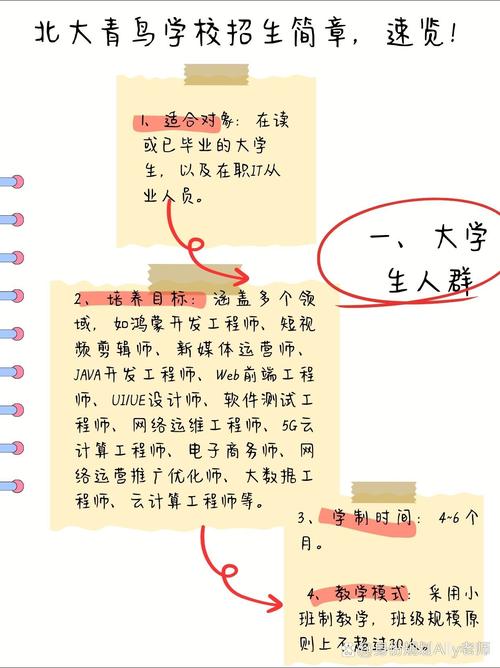 北大青鸟学校招生简章，速览！
1、适合对象：在读
或已毕业的大学
生，以及在职IT从
业人员。
一、大学
生人群
2、培养目标：涵盖多个领
域，如鸿蒙开发工程师、短视
频剪辑师、新媒体运营师、
JAVA开发工程师、Web前端工程
师、UI/UE设计师、软件测试工
程师、网络运维工程师、5G云
计算工程师、电子商务师、网
络运营推广优化师、大数据工
程师、云计算工程师等。
3、学制时间：4~6个
月。
4、教学模式：采用小
班制教学，班级规模原
则上不超过30人。